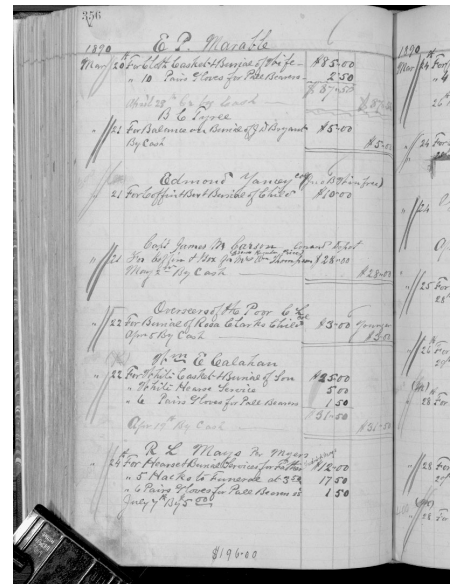 356
1890 E. P. Marable
Mar 20 For Cloth Casket & Burial of Wife - $85.00
" 10 Pairs Gloves for Pall Bearers - 2.50
$87.50
April 28th By Cash $87.50
B L Tyree
" 21 For Balance on Burial of J D Bryant $5.00
By Cash $5.00
Edmond Yancey
21 For Coffin & Burial of Child $10.00
Capt James W Carson
" 21 For Coffin & Box for Mrs Wm Thompson $28.00
May 2nd By Cash $28.00
Overseers of the Poor
" 22 For Burial of Rosa Clarks Child $3.00
Apr 5 By Cash $3.00
E Calahan
" 22 For White Casket & Burial of Son $25.00
" White Hearse Service 5.00
" 6 Pairs Gloves for Pall Bearers 1.50
$31.50
Apr 19th By Cash $31.50
R L Mays
24 For Hearse & Burial Services for Father $12.00
" 5 Hacks to Funeral at 3.50 17.50
" 6 Pairs Gloves for Pall Bearers 1.50
July 7th By 5.00
$196.00